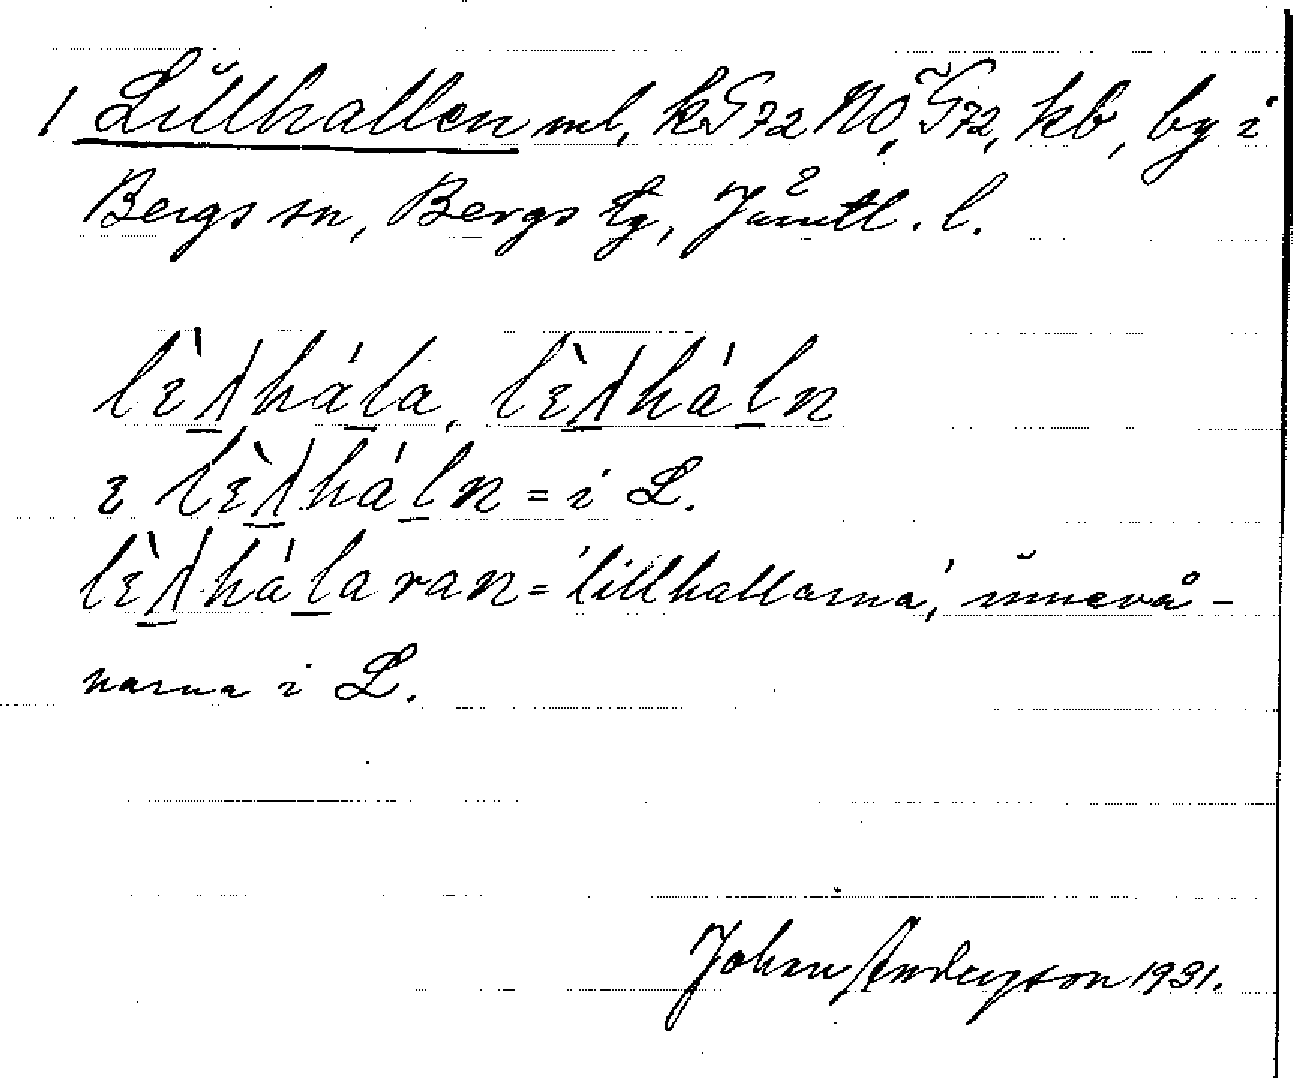 1 Lillhallen ml, kG72 NO, G72, kb, by i
Bergs sn, Bergs tg, Jämtl. l.
lὲʎhála, lὲʎháln
ɛ lὲʎháln = i L.
lὲʎhálaran = 'lillhallarna', innevå-
narna i L.
Johan Anderson 1931.